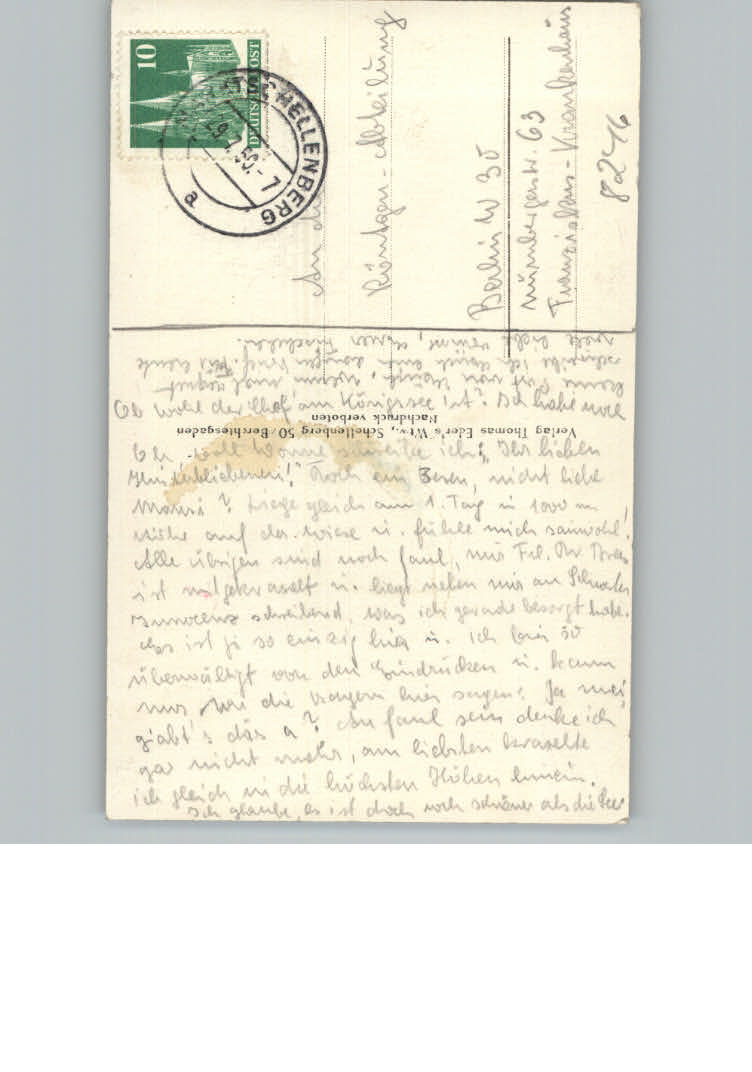 10
DEUTSCHE POST
SCHELLENBERG
29.7.50.-7
a
An die
Röntgen-Abteilung
Berlin W 30
Nürnbergerstr. 63
Franziskus-Krankenhaus
8246
Verlag Thomas Eder's Wtw., Schellenberg 50/Berchtesgaden
Nachdruck verboten
Oh, mit Wonne schreibe ich: "Ihr lieben
Hinterbliebenen!" Noch ein, nicht liebe
? Liege gleich am 1. Tag in 1000 m
Höhe auf der Wiese u. fühle mich sauwohl!
Alle übrigen sind noch faul, nur Frl. Dr.
ist mitgekraxelt u. liegt neben mir an
schreibend, was ich gerade besorgt habe.
Es ist ja so einzig hier u. ich bin so
überwältigt von den Eindrücken u. kann
nur wie die Bayern hier sagen: Ja mei,
giabt's dös a? An faul sein denke ich
gar nicht mehr, am liebsten kraxelte
ich gleich in die höchsten Höhen hinein.
Ich glaube, es ist doch noch schöner als die See
Ob wohl der Chef am Königssee ist? Ich habe noch
keine von
schreibe ich Für heute
viele liebe